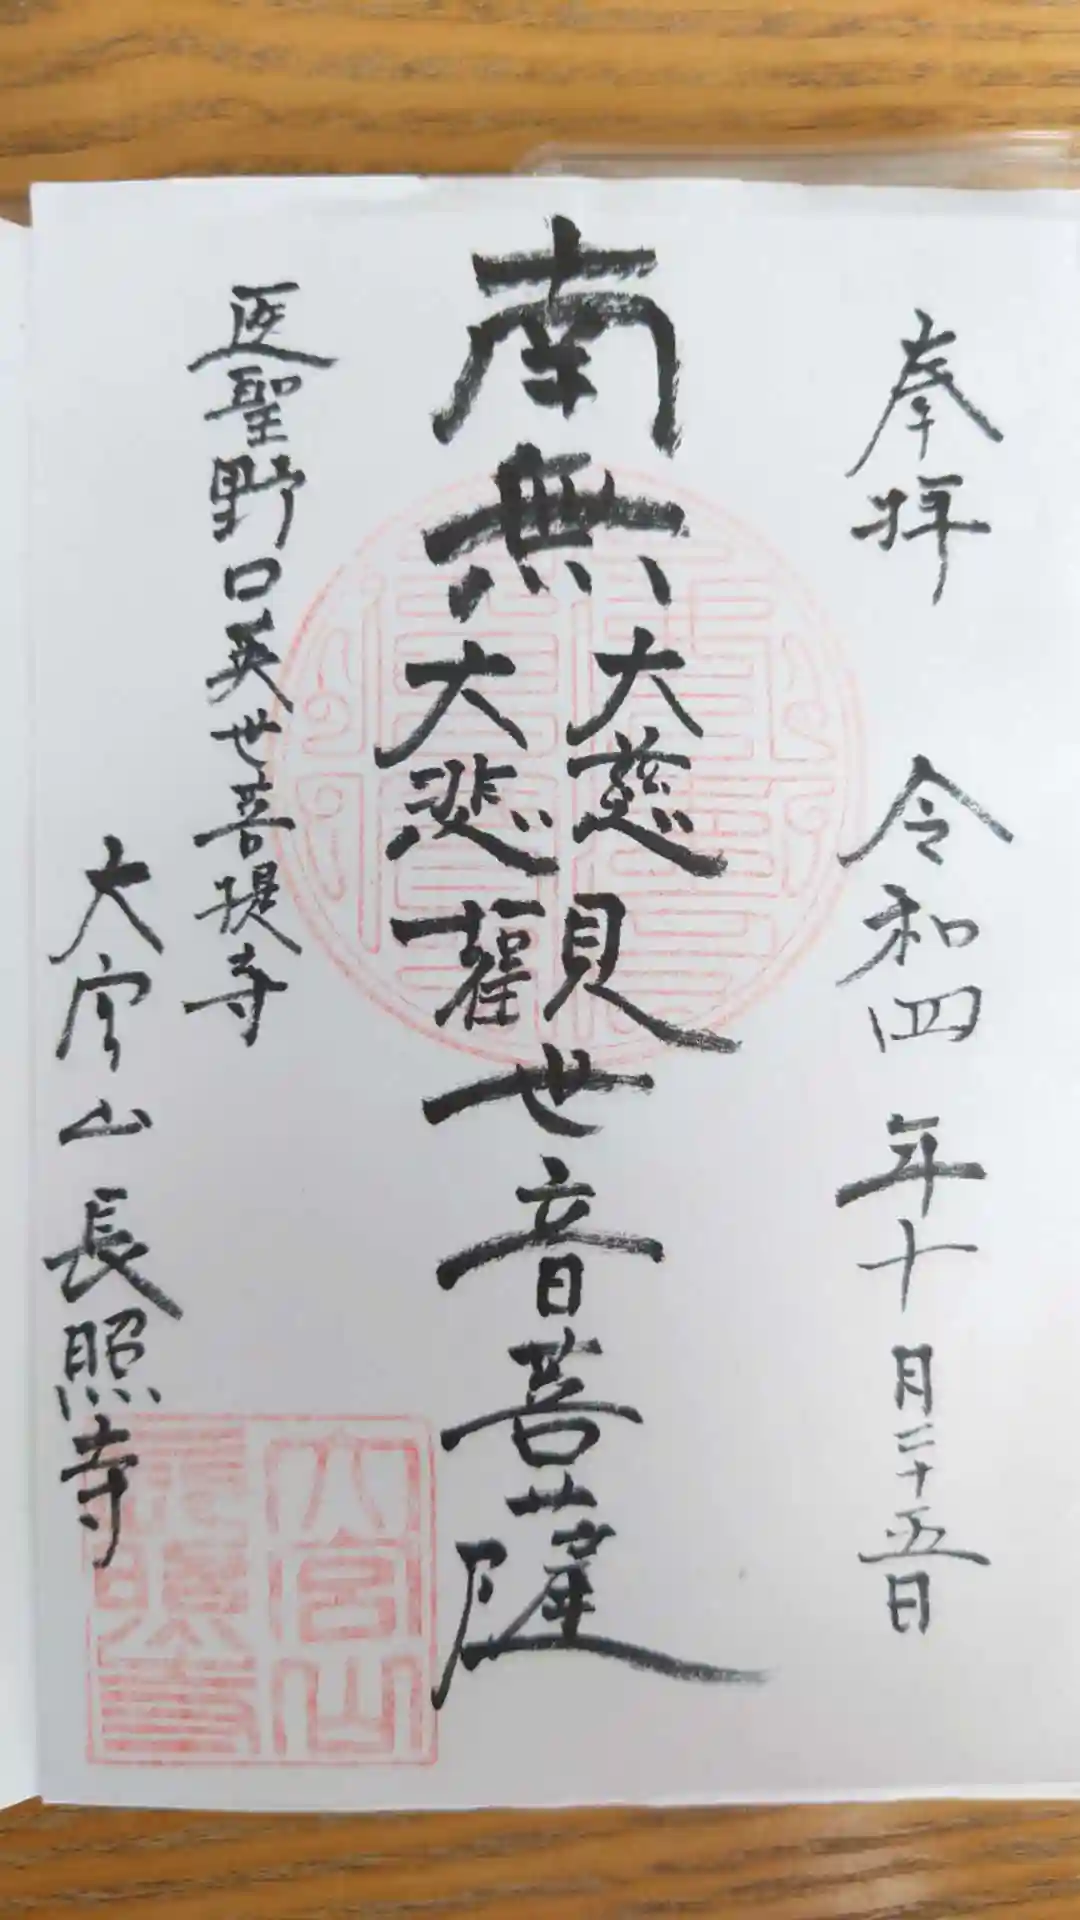 奉拝 令和四年十月二十五日
南無大慈大悲觀世音菩薩
医聖野口英世菩提寺
大宮山長照寺
大宮山
長照寺